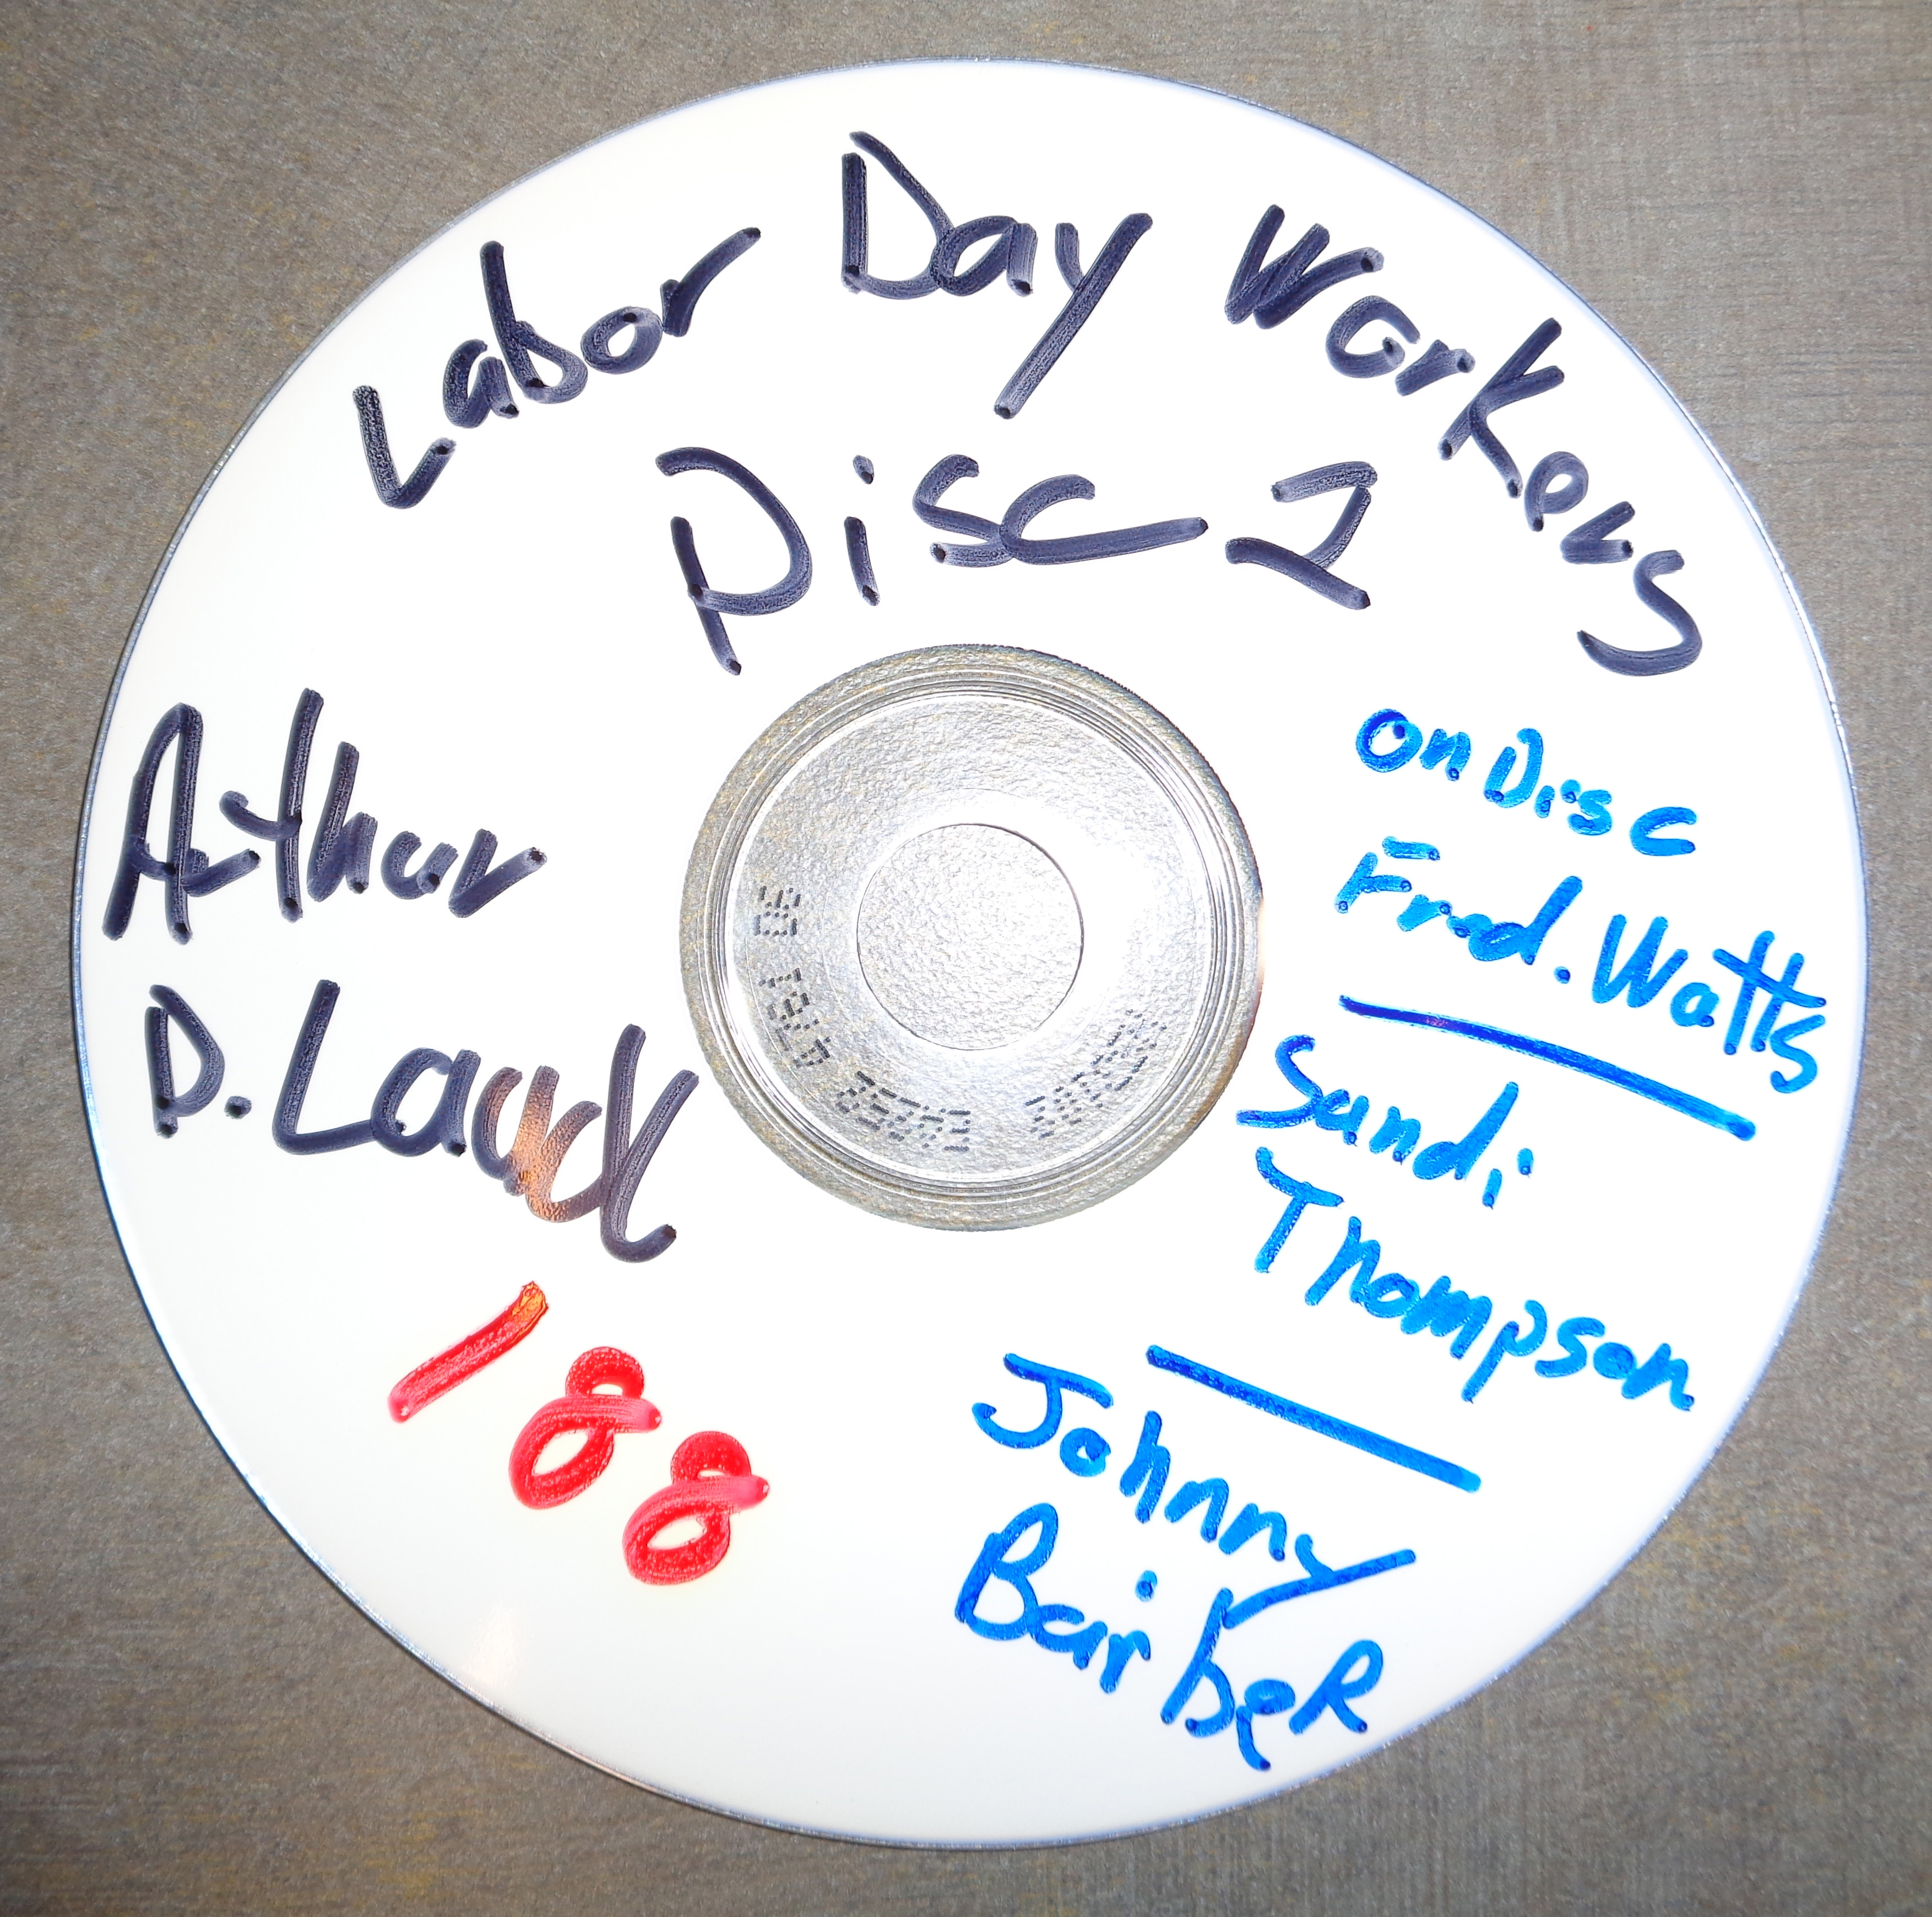 Labor Day Workers
Disc 2
Arthur
D. Lauck
188
on Disc
Fred. Watts
Sandi
Thompson
Johnny
Barber